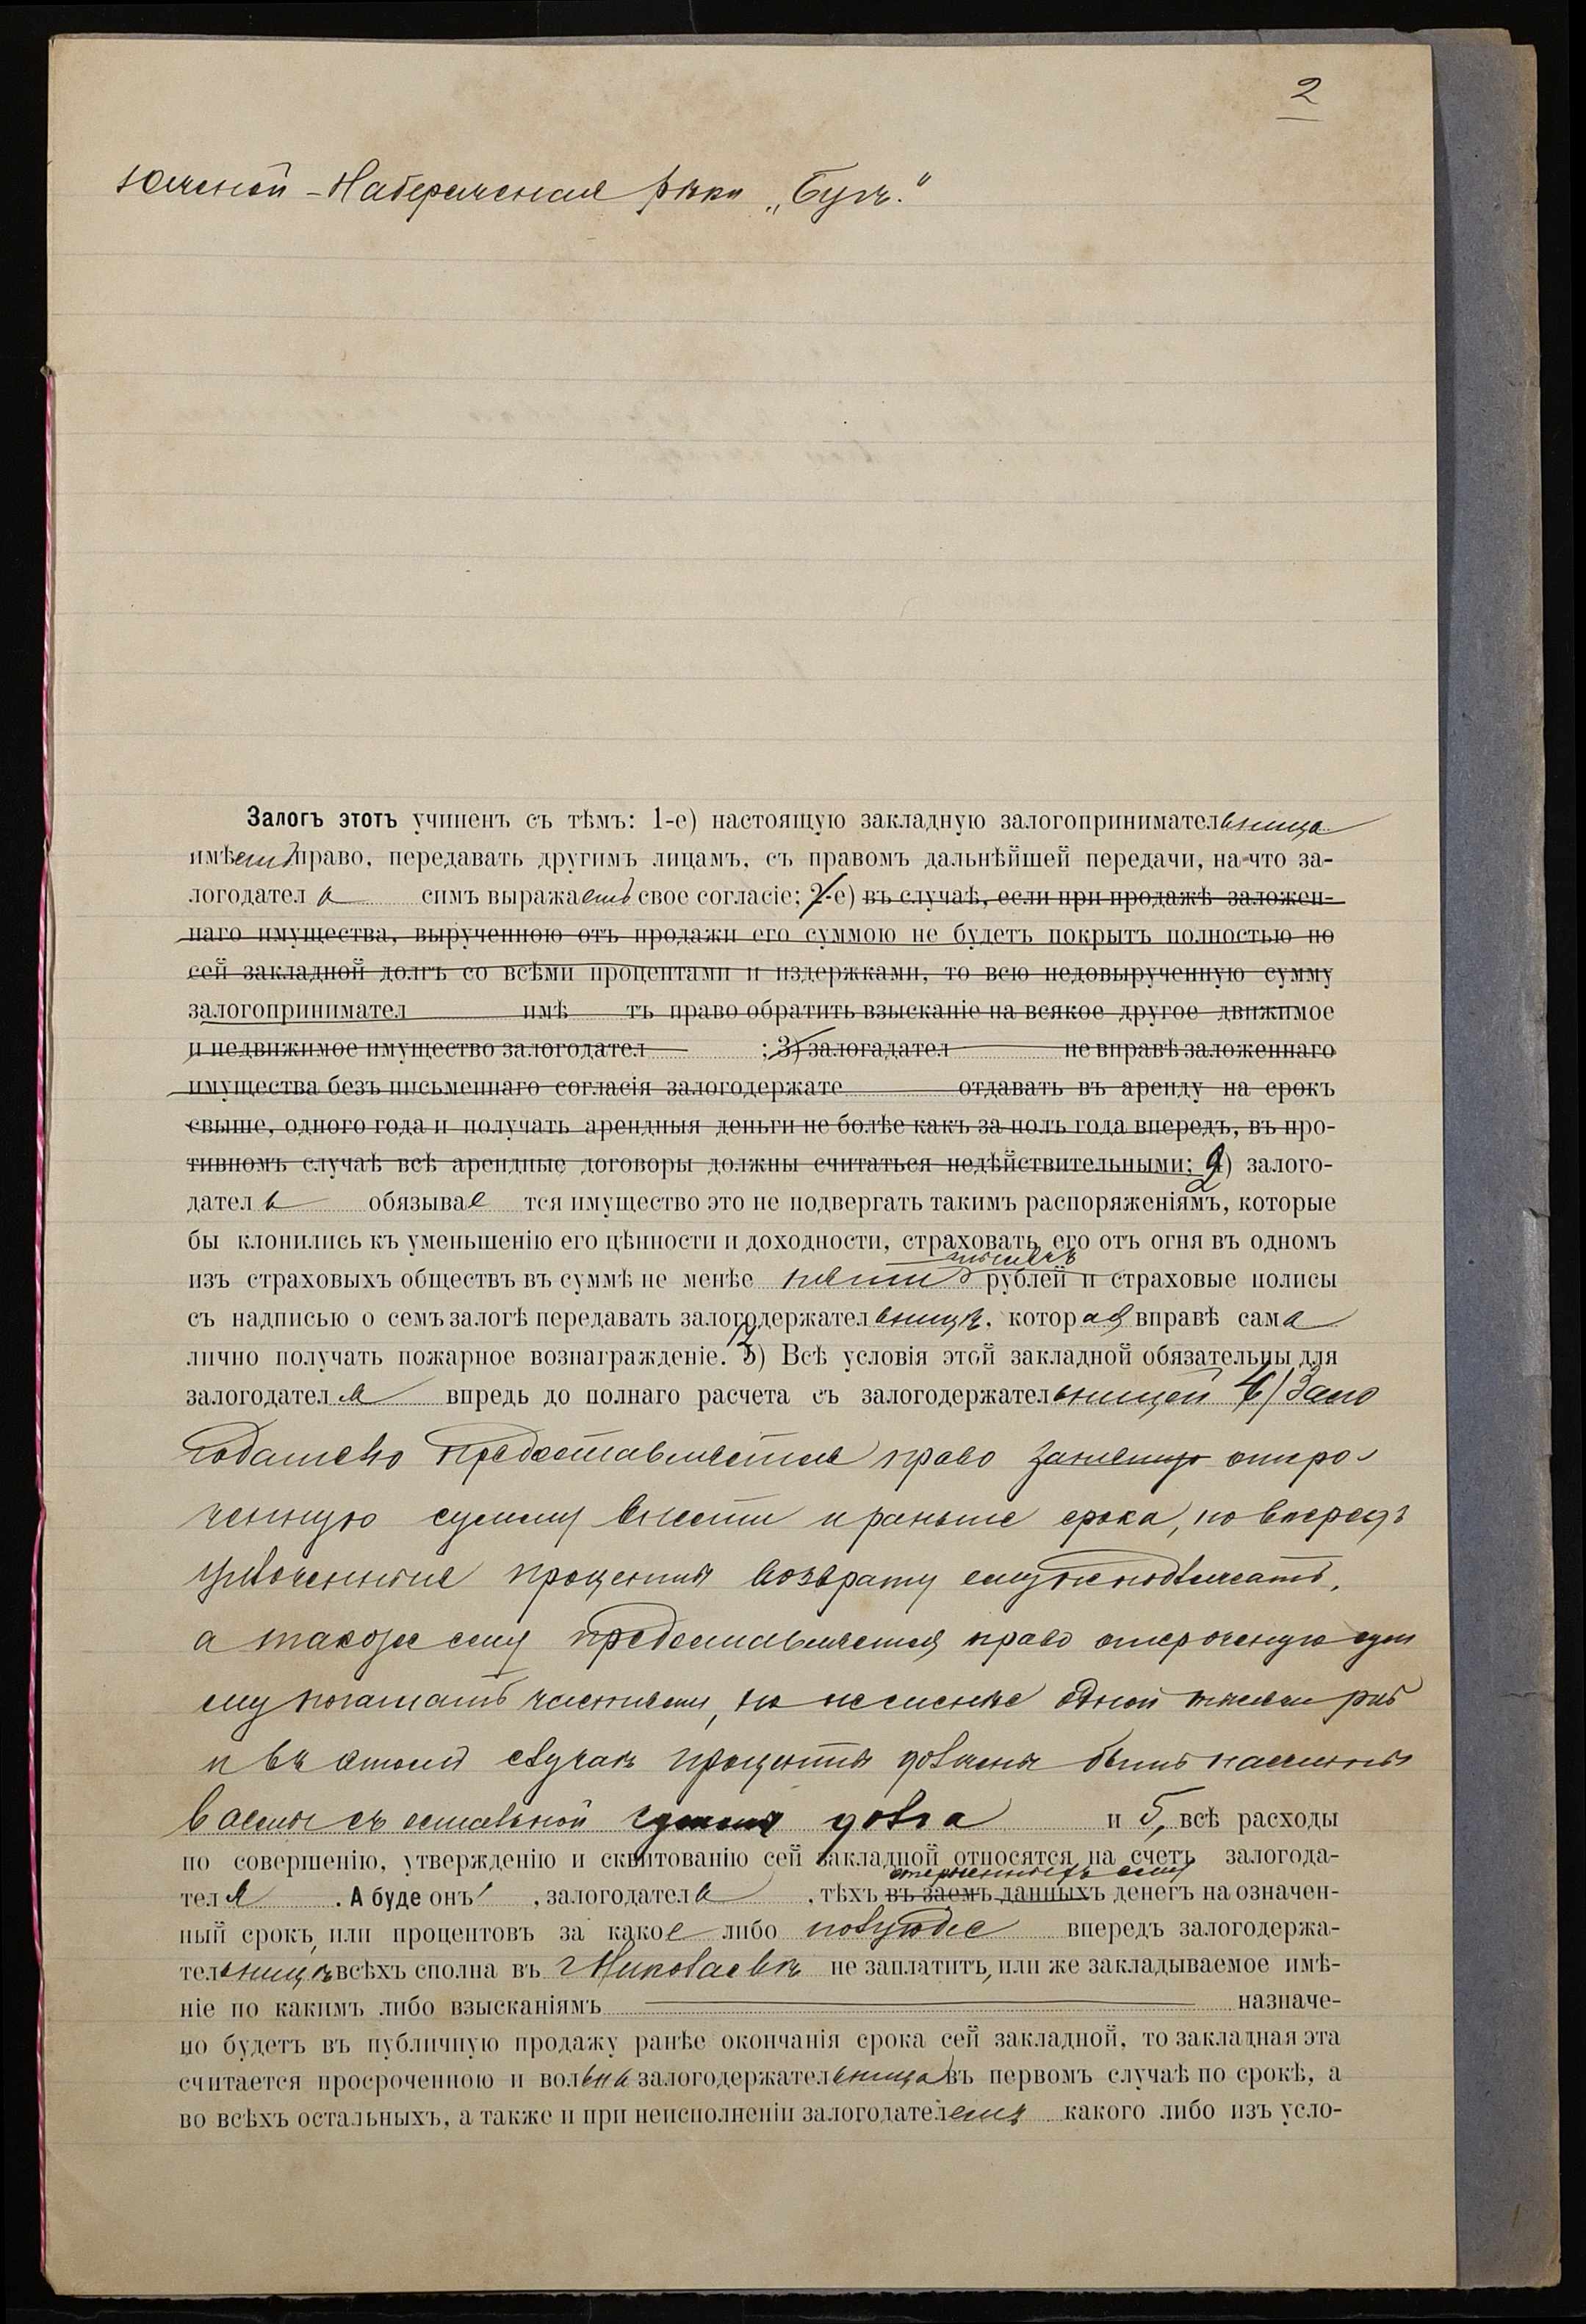 2
южной - Набережная рѣки „Бугъ."
Залогъ этотъ учиненъ съ тѣмъ: 1-е) настоящую закладную залогопринимательница
имѣетъ право, передавать другимъ лицамъ, съ правомъ дальнѣйшей передачи, на что за-
логодатель симъ выражаетъ свое согласіе; 2-е) въ случаѣ, если при продажѣ заложен-
наго имущества, вырученною отъ продажи его суммою не будетъ покрытъ полностью по
сей закладной долгъ со всѣми процентами и издержками, то всю недовырученную сумму
залогопринимател имѣ тъ право обратить взысканіе на всякое другое движимое
и недвижимое имущество залогодател ; 3) залогадател не вправѣ заложеннаго
имущества безъ письменнаго согласія залогодержате отдавать въ аренду на срокъ
свыше, одного года и получать арендныя деньги не болѣе какъ за полъ года впередъ, въ про-
тивномъ случаѣ всѣ арендные договоры должны считаться недѣйствительными; 2) залого-
датель обязывае тся имущество это не подвергать такимъ распоряженіямъ, которые
бы клонились къ уменьшенію его цѣнности и доходности, страховать его отъ огня въ одномъ
тысячъ
изъ страховыхъ обществъ въ суммѣ не менѣе пяти рублей и страховые полисы
съ надписью о семъ залогѣ передавать залогодержательницѣ, которая вправѣ сама
лично получать пожарное вознагражденіе. 3) Всѣ условія этой закладной обязательны для
залогодателя впредь до полнаго расчета съ залогодержательницей 4) Зало
годателю предоставляется право занятую отсро-
ченную сумму внести и раньше срока, но впередъ
уплоченные проценты возврату ему не подлежатъ,
а также ему предоставляется право отсроченую сум
му погашать частями, но не менѣе одной тысячи руб
и въ этомъ случаѣ проценты должны быть
съ остальной суммы долга и 5, всѣ расходы
по совершенію, утвержденію и сквитованію сей закладной относятся на счетъ залогода-
отсроченныхъ ему
теля . А буде онъ , залогодатель , тѣхъ въ заемъ данныхъ денегъ на означен-
ный срокъ, или процентовъ за какое либо полугодіе впередъ залогодержа-
тельницѣ всѣхъ сполна въ г Николаевѣ не заплатитъ, или же закладываемое имѣ-
ніе по какимъ либо взысканіямъ назначе-
но будетъ въ публичную продажу ранѣе окончанія срока сей закладной, то закладная эта
считается просроченною и вольна залогодержательница въ первомъ случаѣ по срокѣ, а
во всѣхъ остальныхъ, а также и при неисполненіи залогодателемъ какого либо изъ усло-